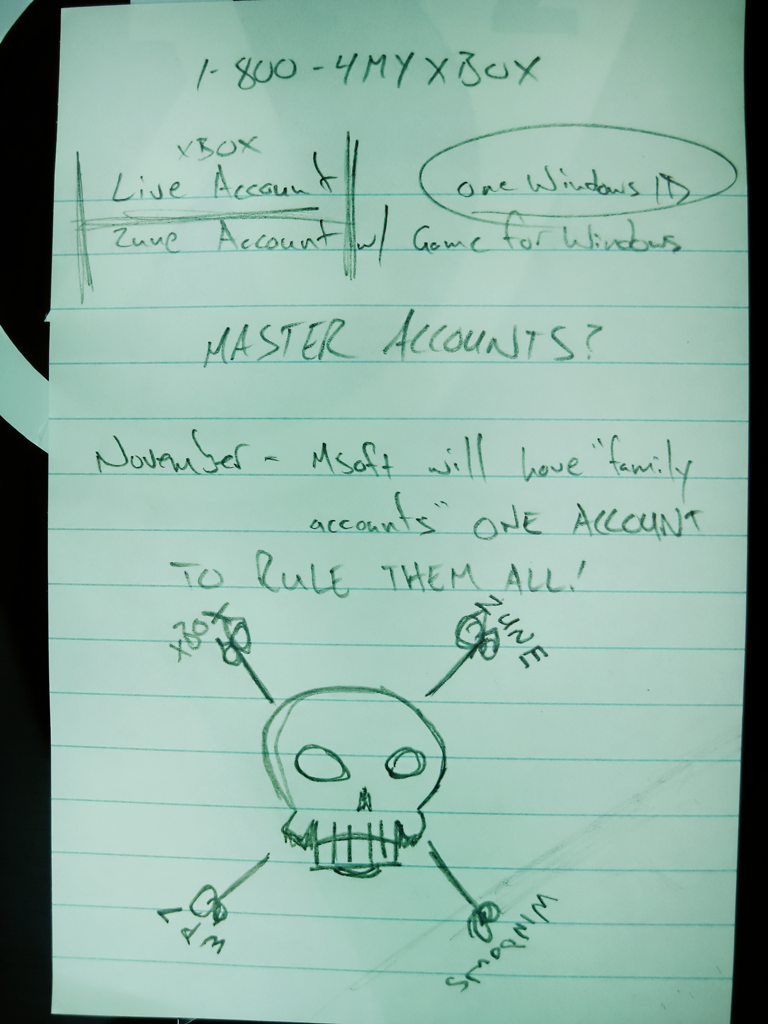 1-800-4MYXBOX
XBOX
Live Account
one Windows ID
Zune Account w/ Game for Windows
MASTER ACCOUNTS?
November - Msoft will have "family
accounts" ONE ACCOUNT
TO RULE THEM ALL!
XBOX
ZUNE
WINDOWS